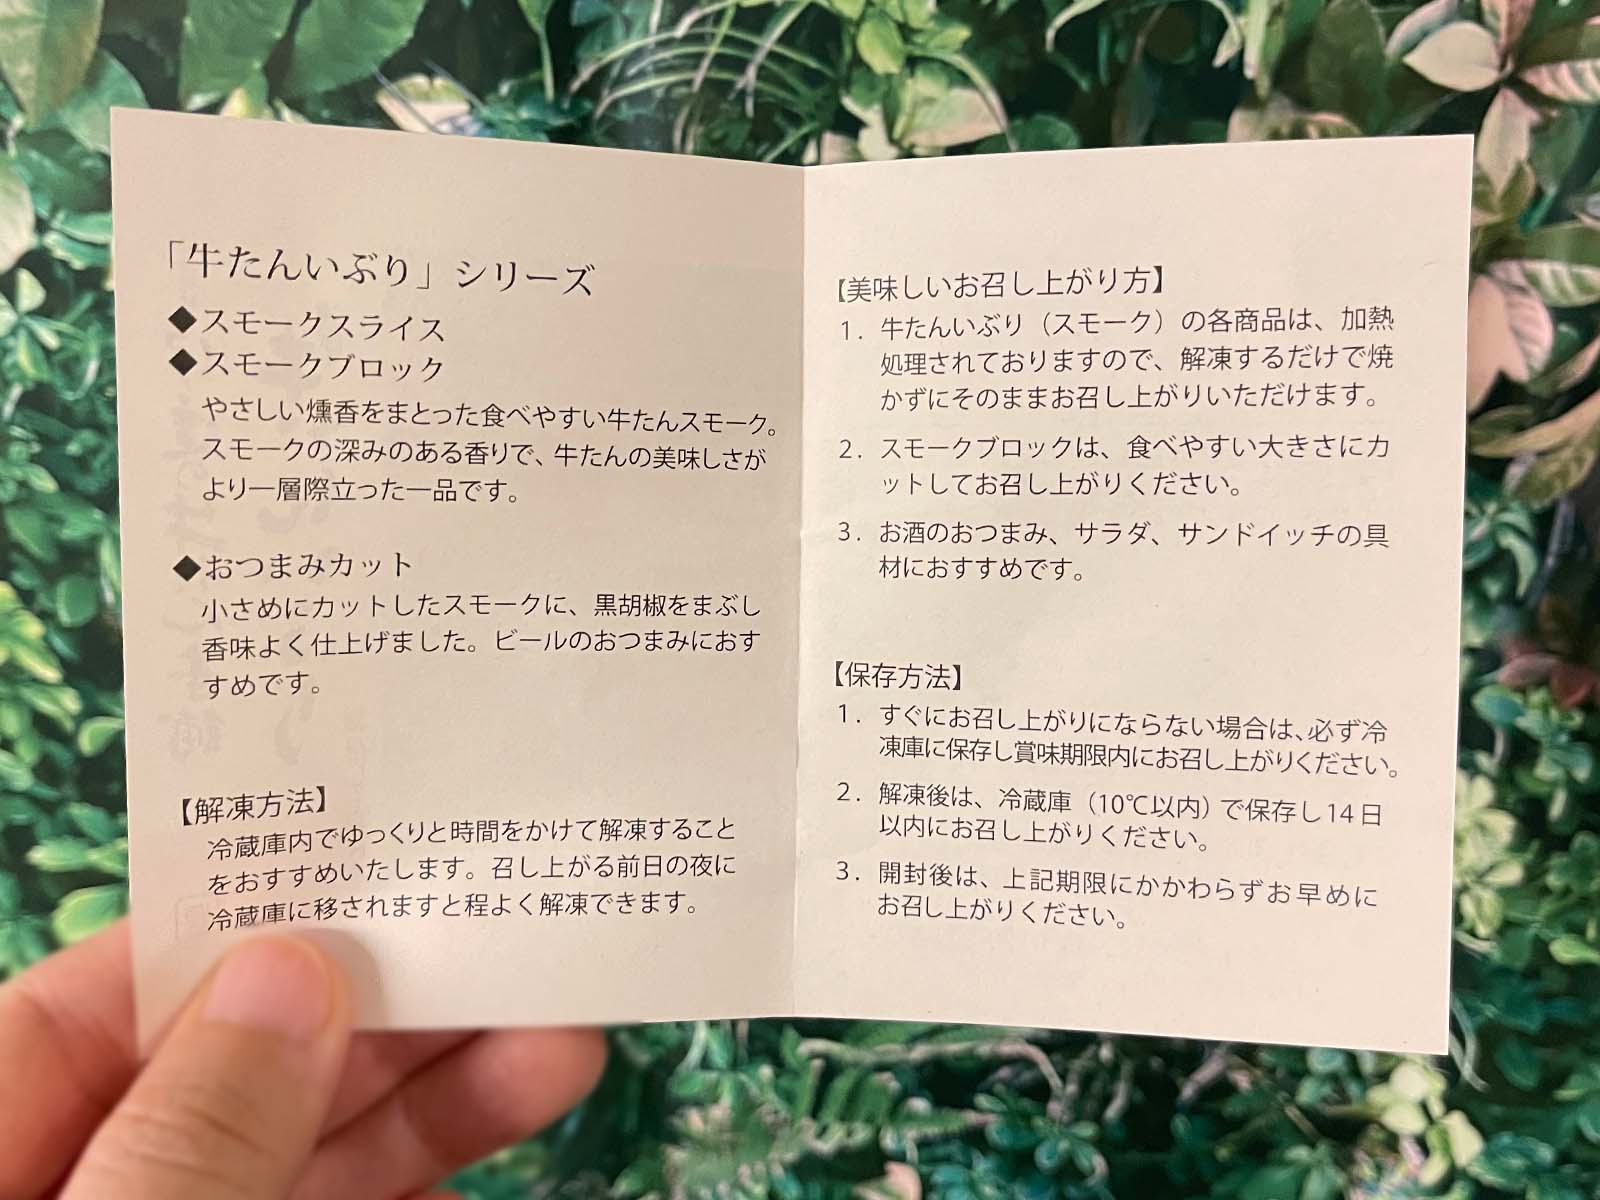 「牛たんいぶり」シリーズ
◆スモークスライス
◆スモークブロック
やさしい燻香をまとった食べやすい牛たんスモーク。
スモークの深みのある香りで、牛たんの美味しさが
より一層際立った一品です。
◆おつまみカット
小さめにカットしたスモークに、黒胡椒をまぶし
香味よく仕上げました。ビールのおつまみにおす
すめです。
【解凍方法】
冷蔵庫内でゆっくりと時間をかけて解凍すること
をおすすめいたします。召し上がる前日の夜に
冷蔵庫に移されますと程よく解凍できます。
【美味しいお召し上がり方】
1．牛たんいぶり（スモーク）の各商品は、加熱
処理されておりますので、解凍するだけで焼
かずにそのままお召し上がりいただけます。
2．スモークブロックは、食べやすい大きさにカ
ットしてお召し上がりください。
3．お酒のおつまみ、サラダ、サンドイッチの具
材におすすめです。
【保存方法】
1．すぐにお召し上がりにならない場合は、必ず冷
凍庫に保存し賞味期限内にお召し上がりください。
2．解凍後は、冷蔵庫（10℃以内）で保存し14日
以内にお召し上がりください。
3．開封後は、上記期限にかかわらずお早めに
お召し上がりください。